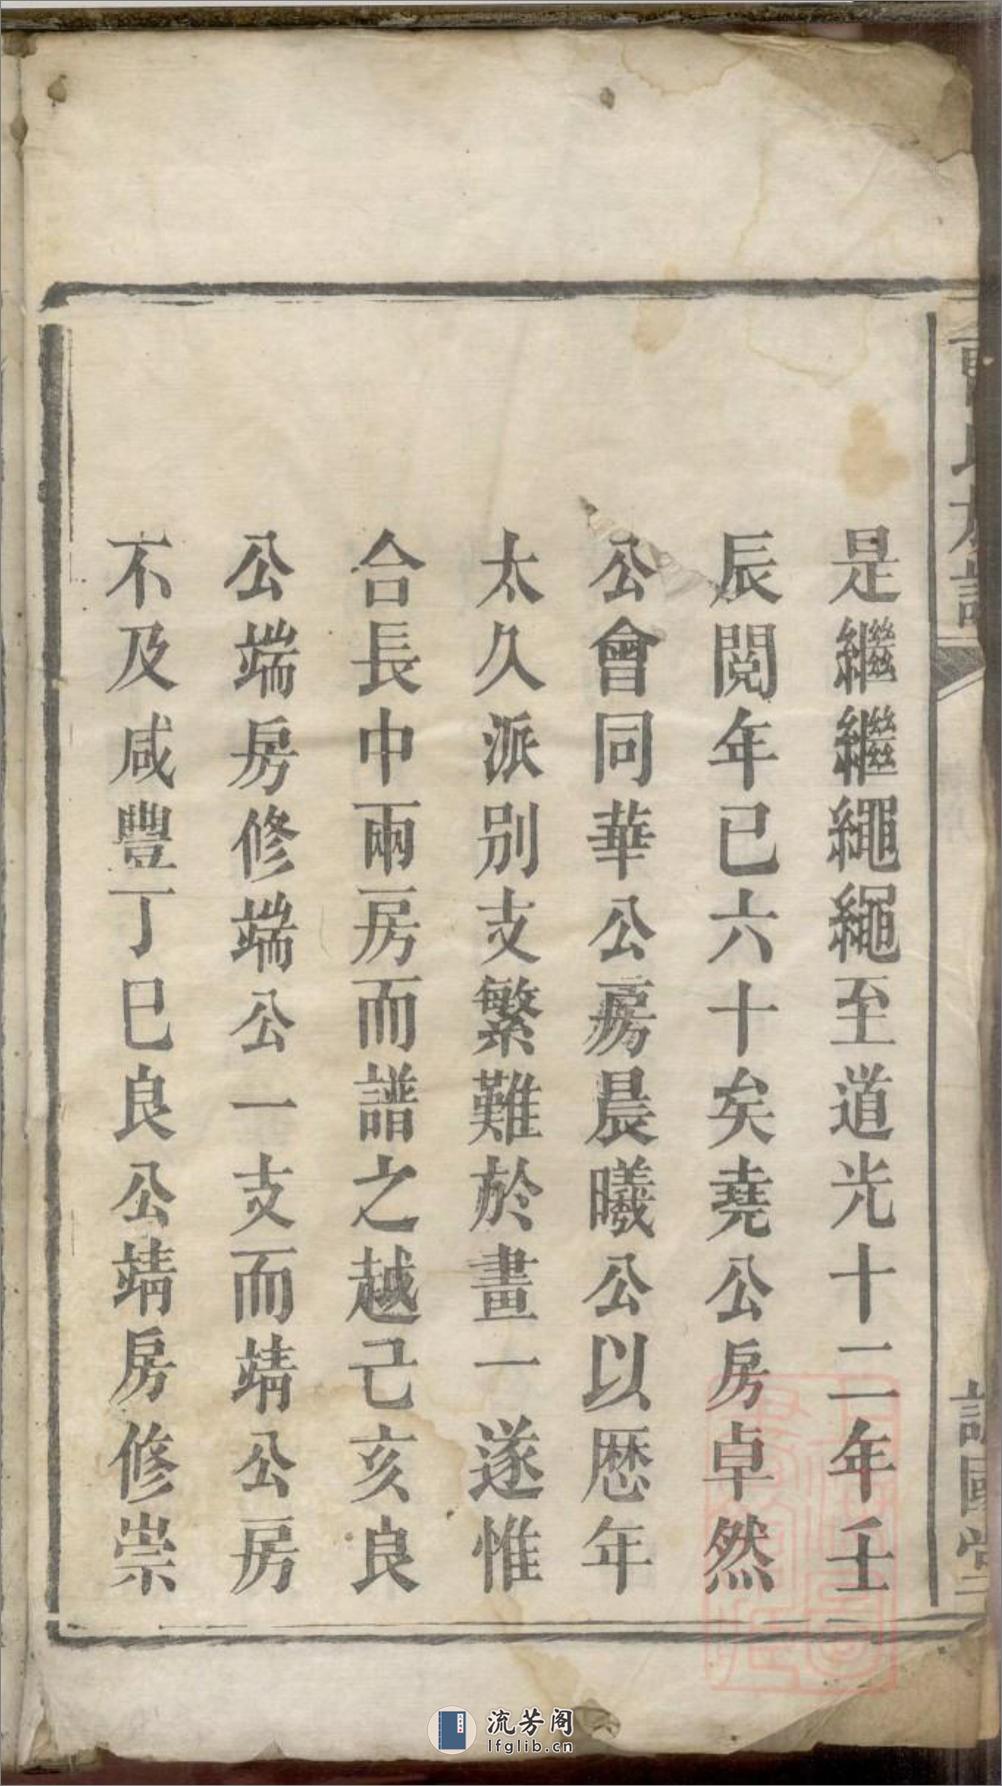 是繼繼繩繩至道光十二年壬
辰閱年已六十矣堯公房卓然
公會同華公房晨曦公以厯年
太久派別支繁難於畫一遂惟
合長中兩房而譜之越己亥良
公端房修端公一支而靖公房
不及咸豐丁巳良公靖房修崇
流芳阁
lfglib.cn